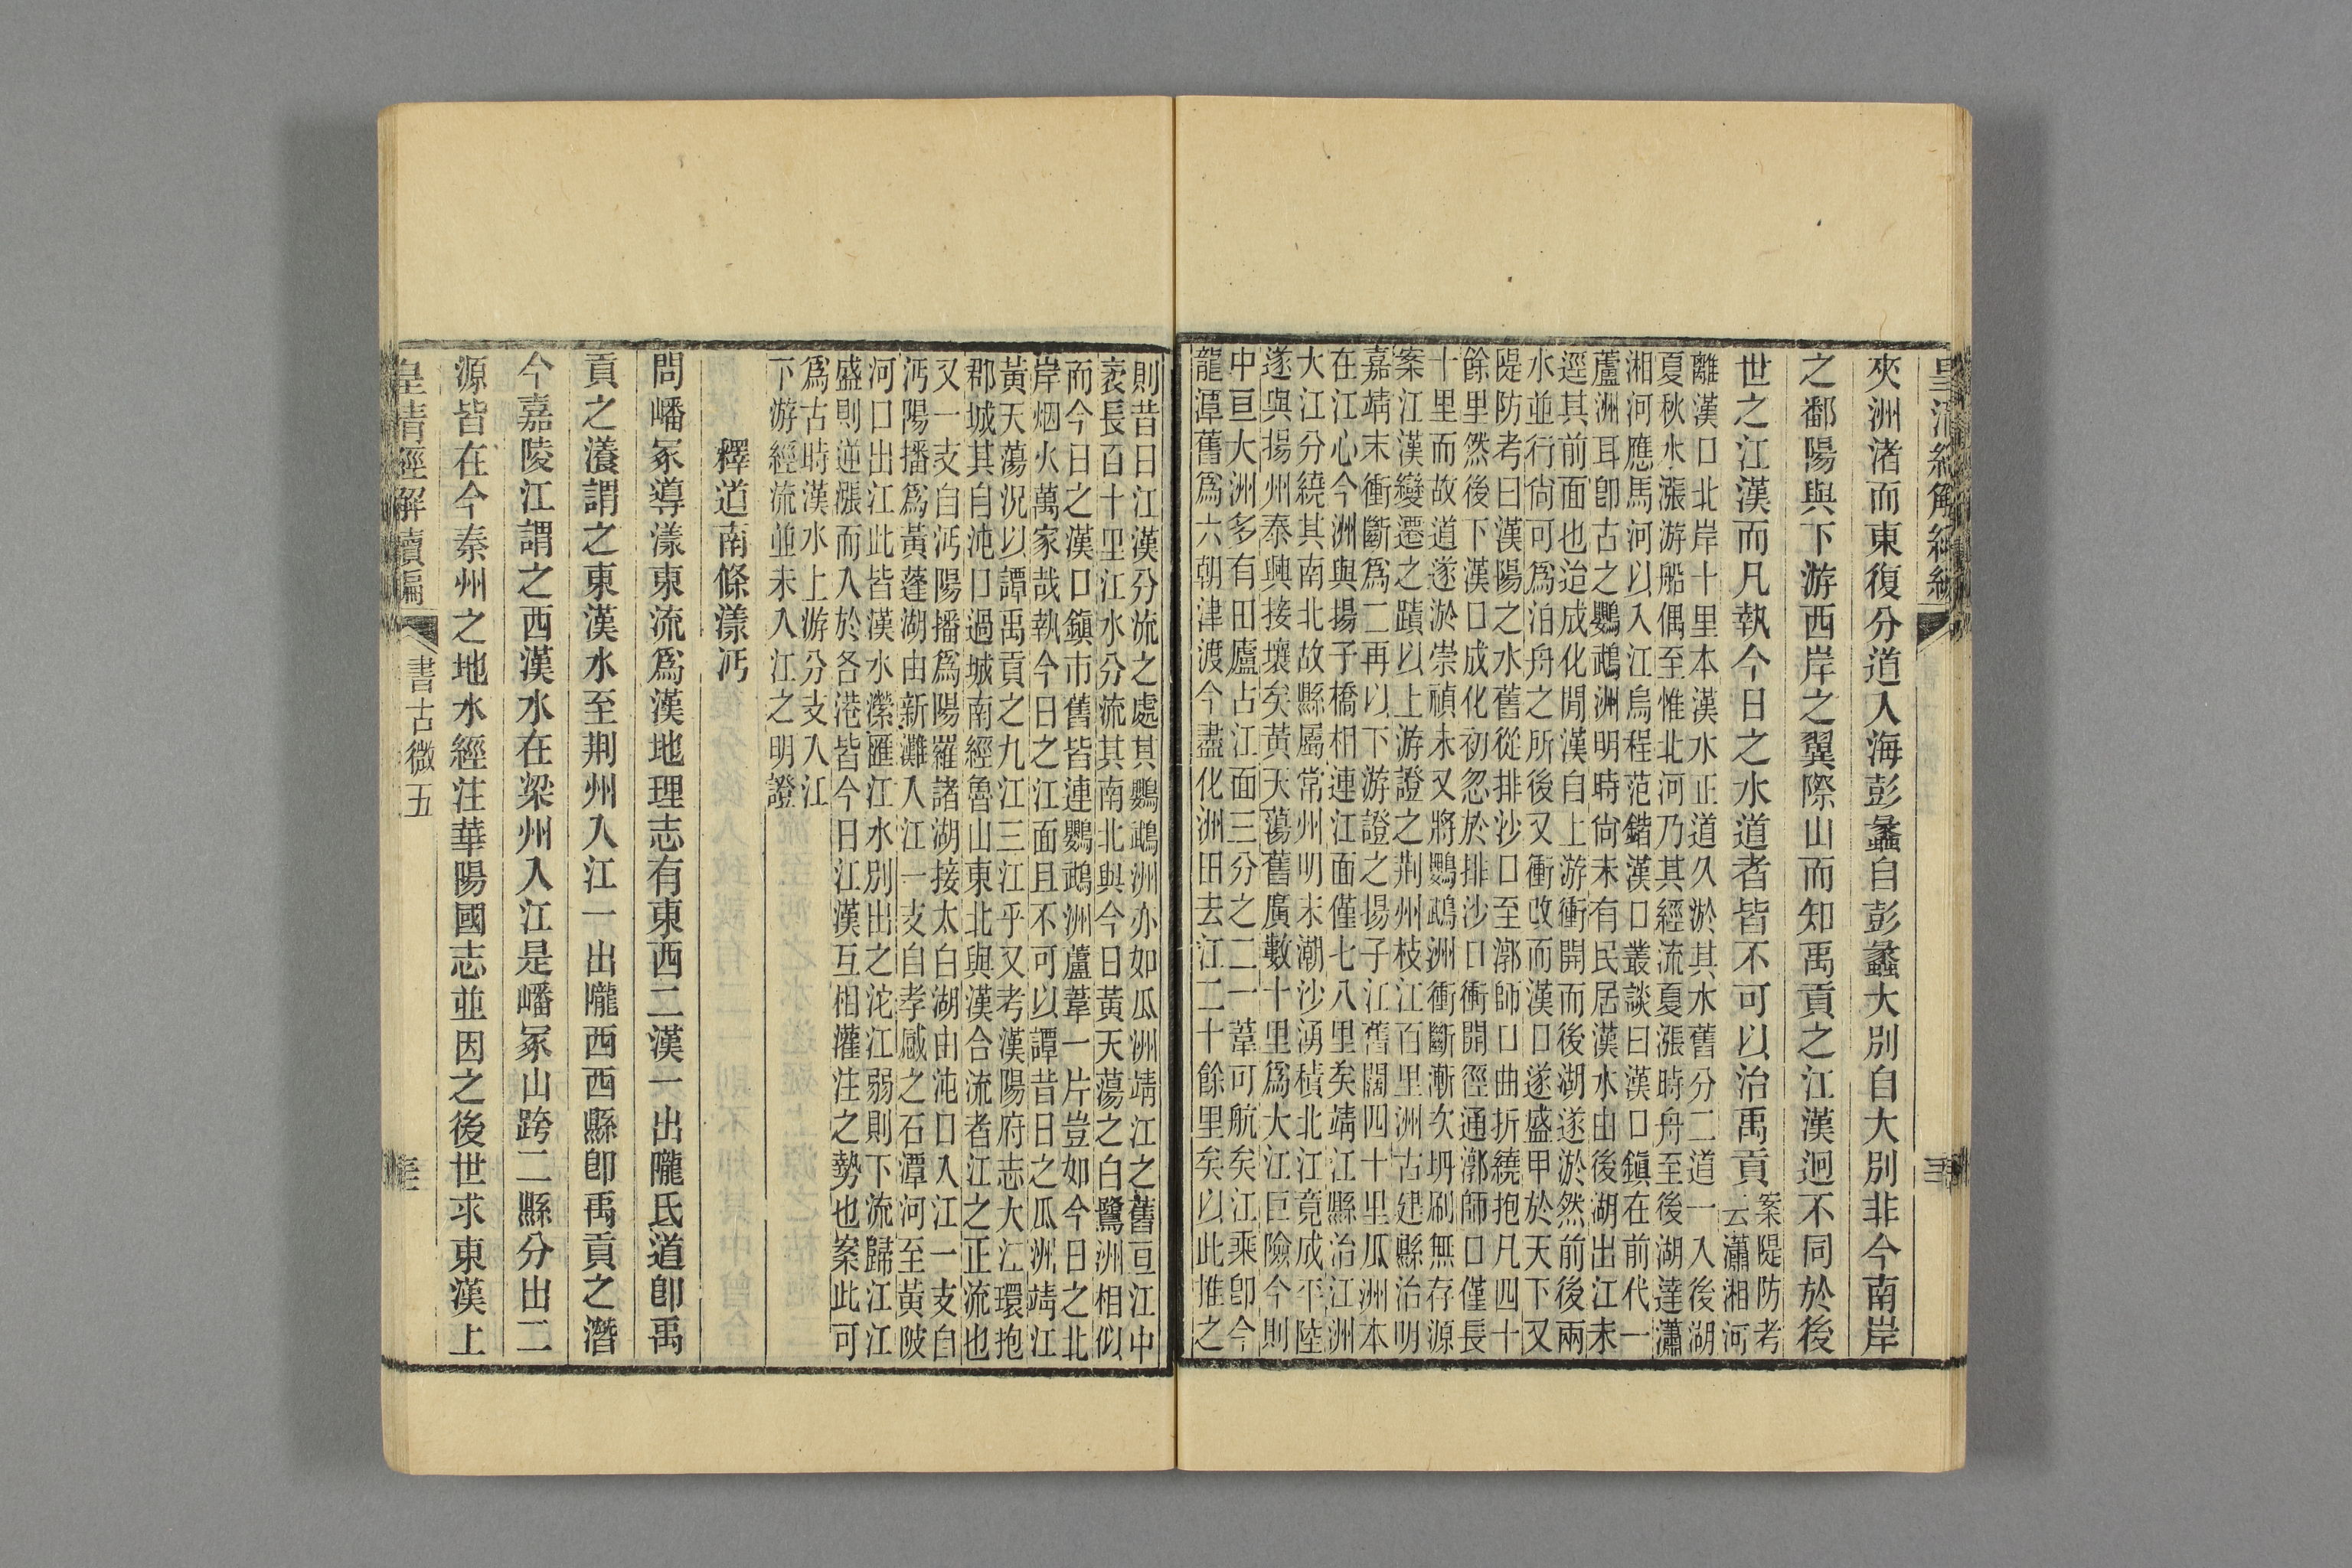 夾洲渚而東復分道入海彭蠡自彭蠡大別自大別非今南岸
之鄱陽與下游西岸之翼際山而知禹貢之江漢迥不同於後
世之江漢而凡執今日之水道者皆不可以治禹貢
案隄防考
云瀟湘河
離漢口北岸十里本漢水正道久淤其水舊分二道一入後湖
夏秋水漲游船偶至惟北河乃其經流夏漲時舟至後湖達瀟
湘河應馬河以入江烏程范鍇漢口叢談曰漢口鎮在前代一
蘆洲耳卽古之鸚鵡洲明時尙未有民居漢水由後湖出江未
逕其前面也迨成化閒漢自上游衝開而後湖遂淤然前後兩
水並行尙可爲泊舟之所後又衝改而漢口遂盛甲於天下又
隄防考曰漢陽之水舊從排沙口至漷師口曲折繞抱凡四十
餘里然後下漢口成化初忽於排沙口衝開徑通漷師口僅長
十里而故道遂淤崇禎末又將鸚鵡洲衝斷漸次坍刷無存源
案江漢變遷之蹟以上游證之荆州枝江百里洲古建縣治明
嘉靖末衝斷爲二再以下游證之揚子江舊闊四十里瓜洲本
在江心今洲與揚子橋相連江面僅七八里矣靖江縣治江洲
大江分繞其南北故縣屬常州明末潮沙湧積北江竟成平陸
遂與揚州泰興接壤矣黃天蕩舊廣數十里爲大江巨險今則
中亘大洲多有田廬占江面三分之二一葦可航矣江乘卽今
龍潭舊爲六朝津渡今盡化洲田去江二十餘里矣以此推之
則昔日江漢分流之處其鸚鵡洲亦如瓜洲靖江之舊亘江中
袤長百十里江水分流其南北與今日黃天蕩之白鷺洲相似
而今日之漢口鎮市舊皆連鸚鵡洲蘆葦一片豈如今日之北
岸烟火萬家哉執今日之江面且不可以譚昔日之瓜洲靖江
黃天蕩況以譚禹貢之九江三江乎又考漢陽府志大江環抱
郡城其自沌口過城南經魯山東北與漢合流者江之正流也
又一支自沔陽播爲陽羅諸湖接太白湖由沌口入江一支自
沔陽播爲黃蓬湖由新灘入江一支自孝感之石潭河至黃陂
河口出江此皆漢水瀠匯江水別出之沱江弱則下流歸江江
盛則逆漲而入於各港皆今日江漢互相灌注之勢也案此可
爲古時漢水上游分支入江
下游經流並未入江之明證
釋道南條漾沔
問嶓冢導漾東流爲漢地理志有東西二漢一出隴氐道卽禹
貢之瀁謂之東漢水至荆州入江一出隴西西縣卽禹貢之潛
今嘉陵江謂之西漢水在梁州入江是嶓冢山跨二縣分出二
源皆在今秦州之地水經注華陽國志並因之後世求東漢上
皇清經解續編
書古微五